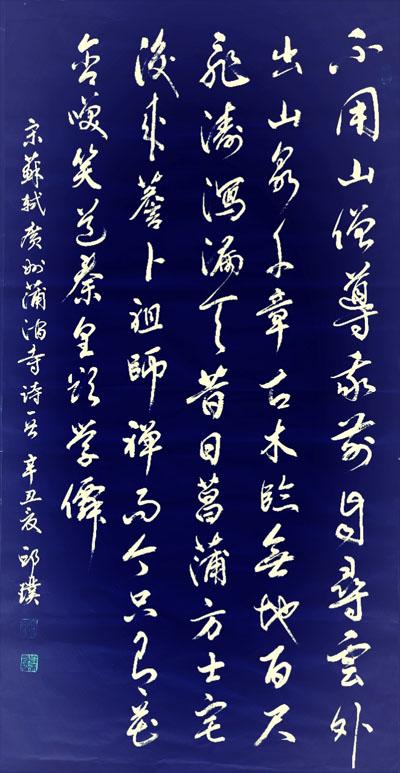 不用山僧導我前自尋雲外
出山泉千章古木臨無地百尺
飛濤瀉漏天昔日菖蒲方士宅
後來薝卜祖師禅而今只有花
含咲笑道秦皇欲学僊
宋蘇軾廣州蒲澗寺诗一首 辛丑夏 邱璞